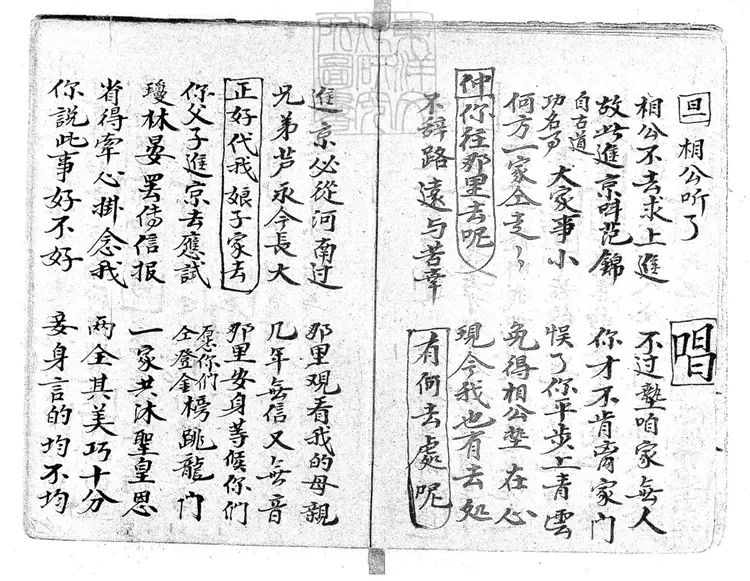 東洋文
化研究
所圖書
旦 相公听了 唱
相公不去求上進 不过墊咱家無人
故此進京叫范錦 你才不肯离家门
自古道功名事大家事小 悮了你平步上青雲
何方一家仝走走 免得相公墊在心
仲 你往那里去呢 現今我也有去处
不辞路遠与苦辛 有何去處呢
進京必從河南过 那里观看我的母親
兄弟芦永今長大 几年無信又無音
正好代我娘子家去 那里安身等候你们
你父子進京去應試 愿你们仝登金榜跳龍门
瓊林宴罢俻信报 一家共沐聖皇恩
省得牽心掛念我 两全其美巧十分
你説此事好不好 妾身言的均不均